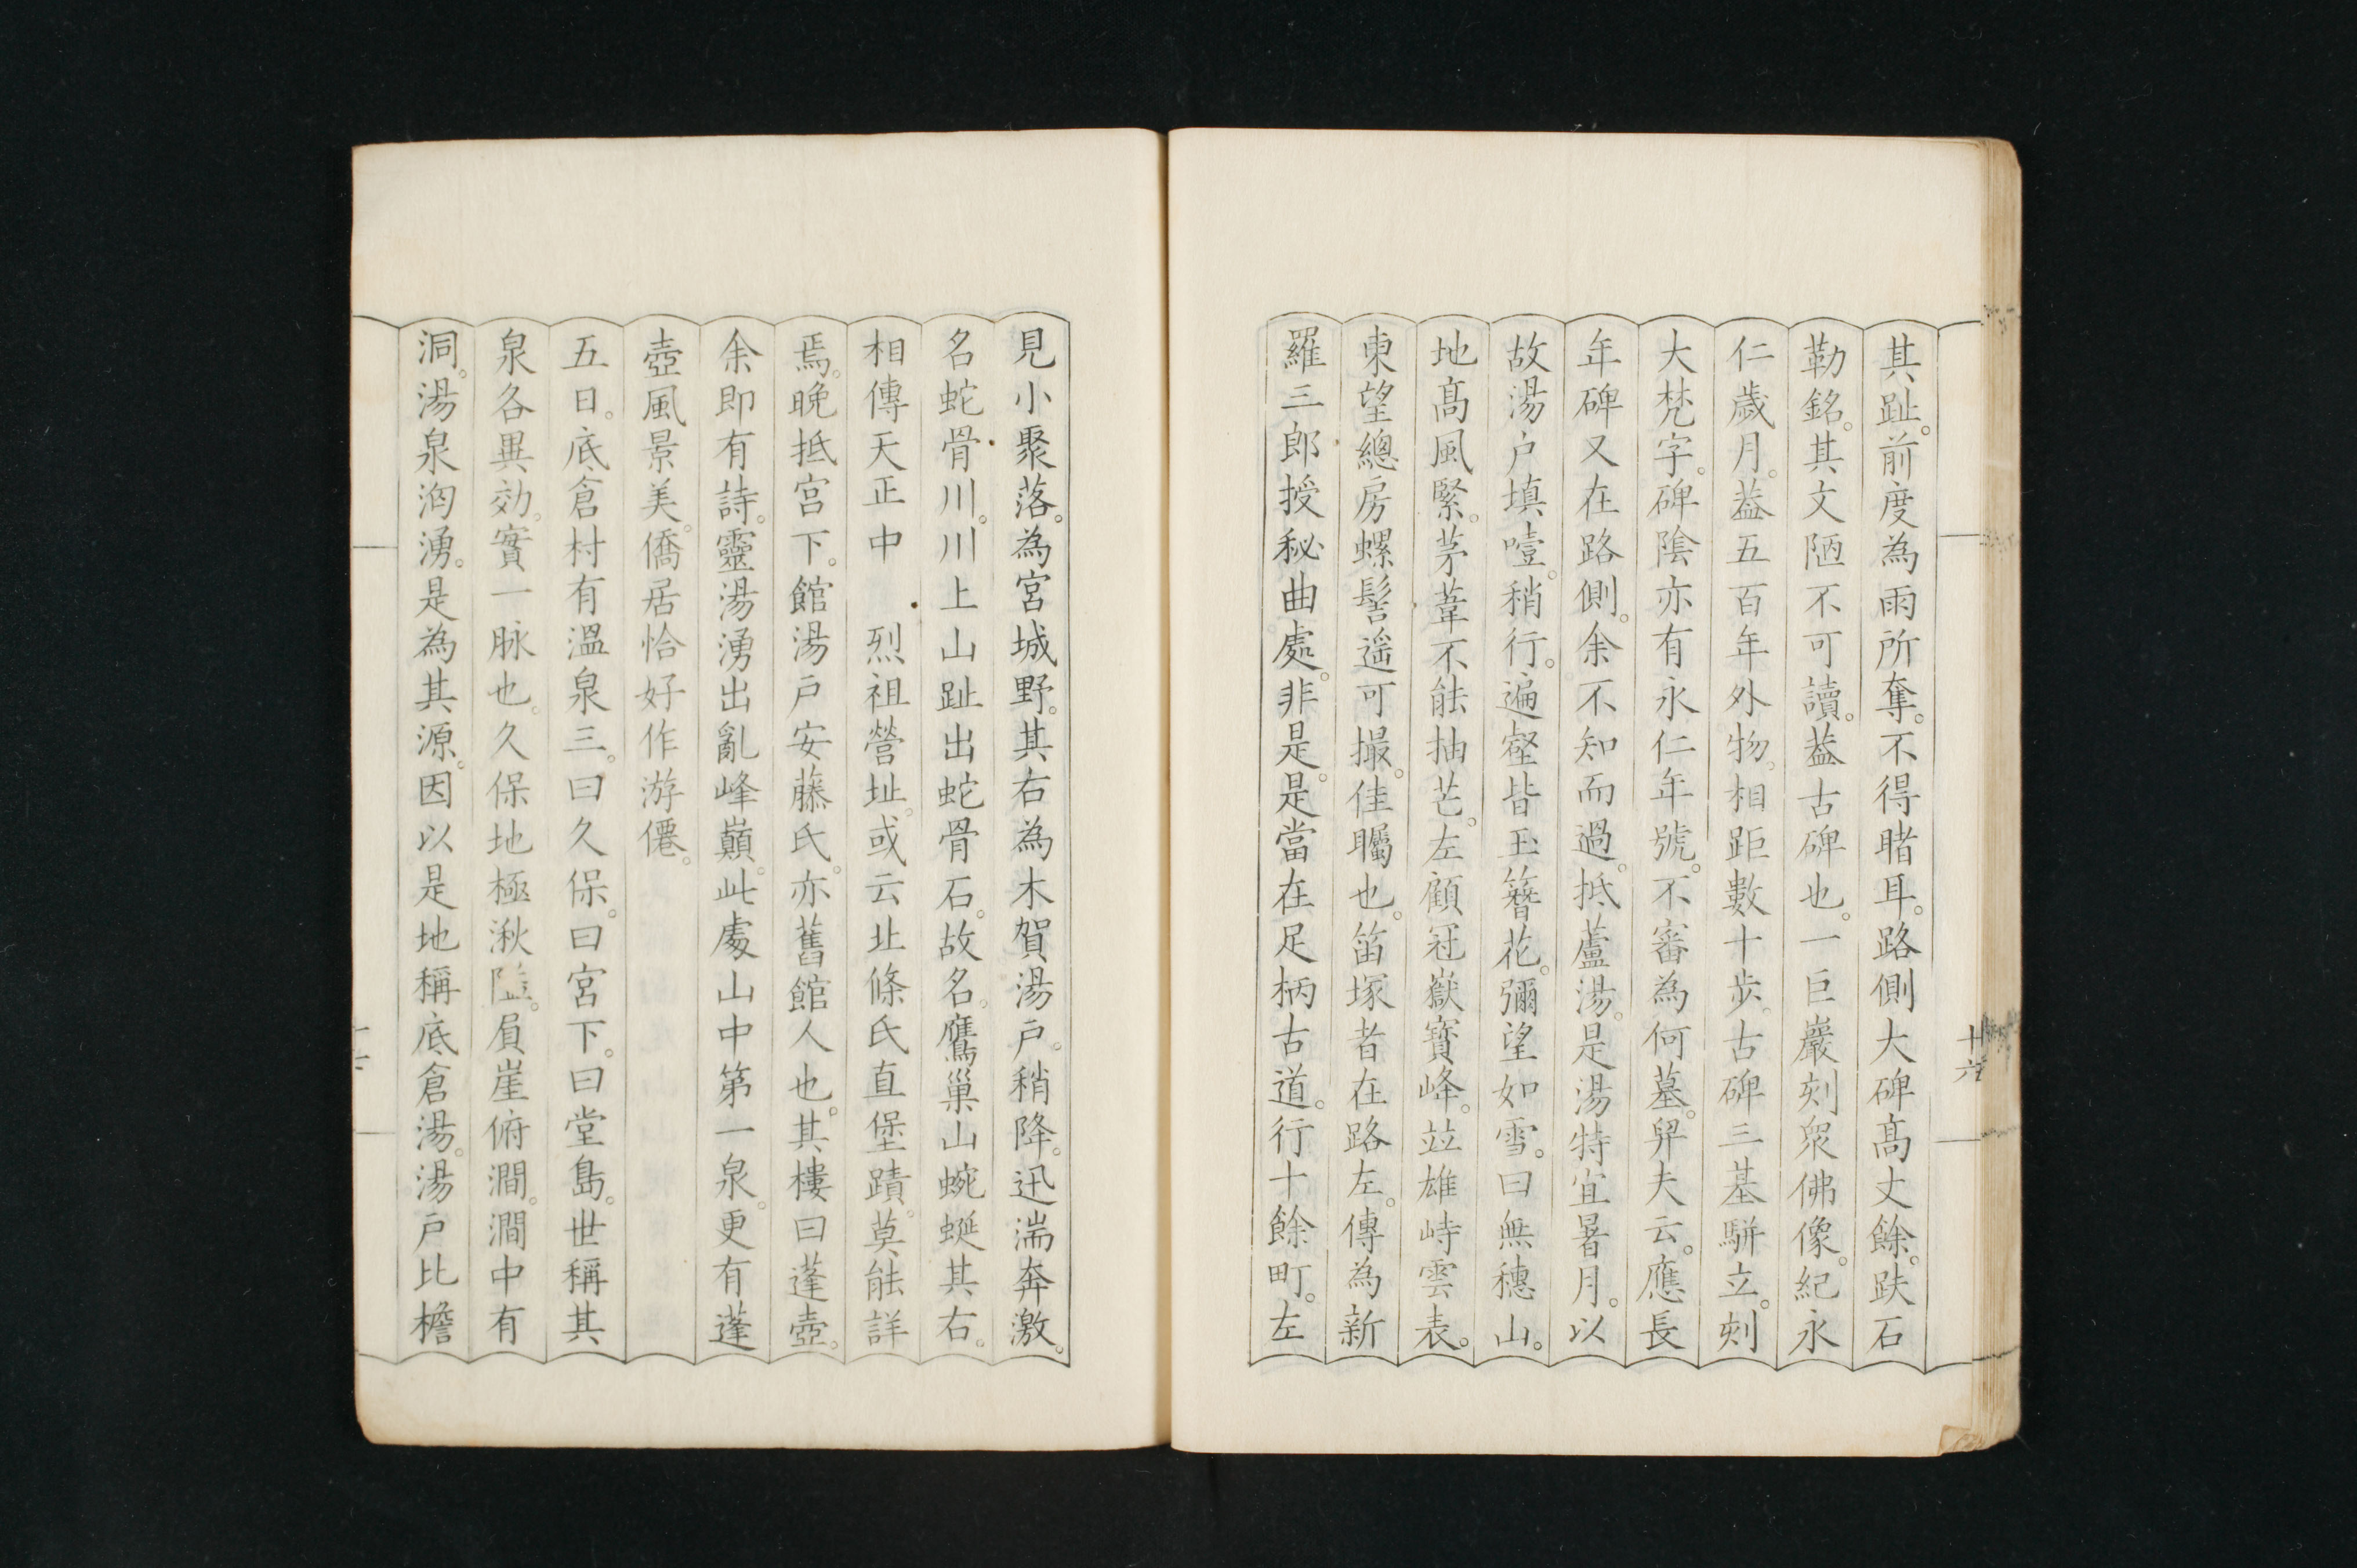 其趾。前度為雨所奪。不得睹耳。路側大碑高丈餘。趺石
勒銘。其文陋不可讀。葢古碑也。一巨巖刻眾佛像。紀永
仁歲月。葢五百年外物。相距數十步。古碑三基駢立。刻
大梵字。碑陰亦有永仁年號。不審為何墓。舁夫云。應長
年碑又在路側。余不知而過。抵蘆湯。是湯特宜暑月。以
故湯戶填噎。稍行。遍壑皆玉簪花。彌望如雪。曰無穗山。
地高風緊。茅葦不能抽芒。左顧冠嶽寶峰。竝雄峙雲表。
東望總房螺髻遥可撮。佳矚也。笛塚者在路左。傳為新
羅三郎授秘曲處。非是。是當在足柄古道。行十餘町。左
十六
見小聚落。為宮城野。其右為木賀湯戶。稍降。迅湍奔激。
名蛇骨川。川上山趾出蛇骨石。故名。鷹巢山蜿蜒其右。
相傳天正中　烈祖營址。或云北條氏直堡蹟。莫能詳
焉。晚抵宮下。館湯戶安藤氏。亦舊館人也。其樓曰蓬壺。
余即有詩。靈湯湧出亂峰巔。此處山中第一泉。更有蓬
壺風景美。僑居恰好作游僊。
五日。底倉村有溫泉三。曰久保。曰宮下。曰堂島。世稱其
泉各異効。實一脉也。久保地極湫隘。負崖俯澗。澗中有
洞。湯泉洶湧。是為其源。因以是地稱底倉湯。湯戶比檐